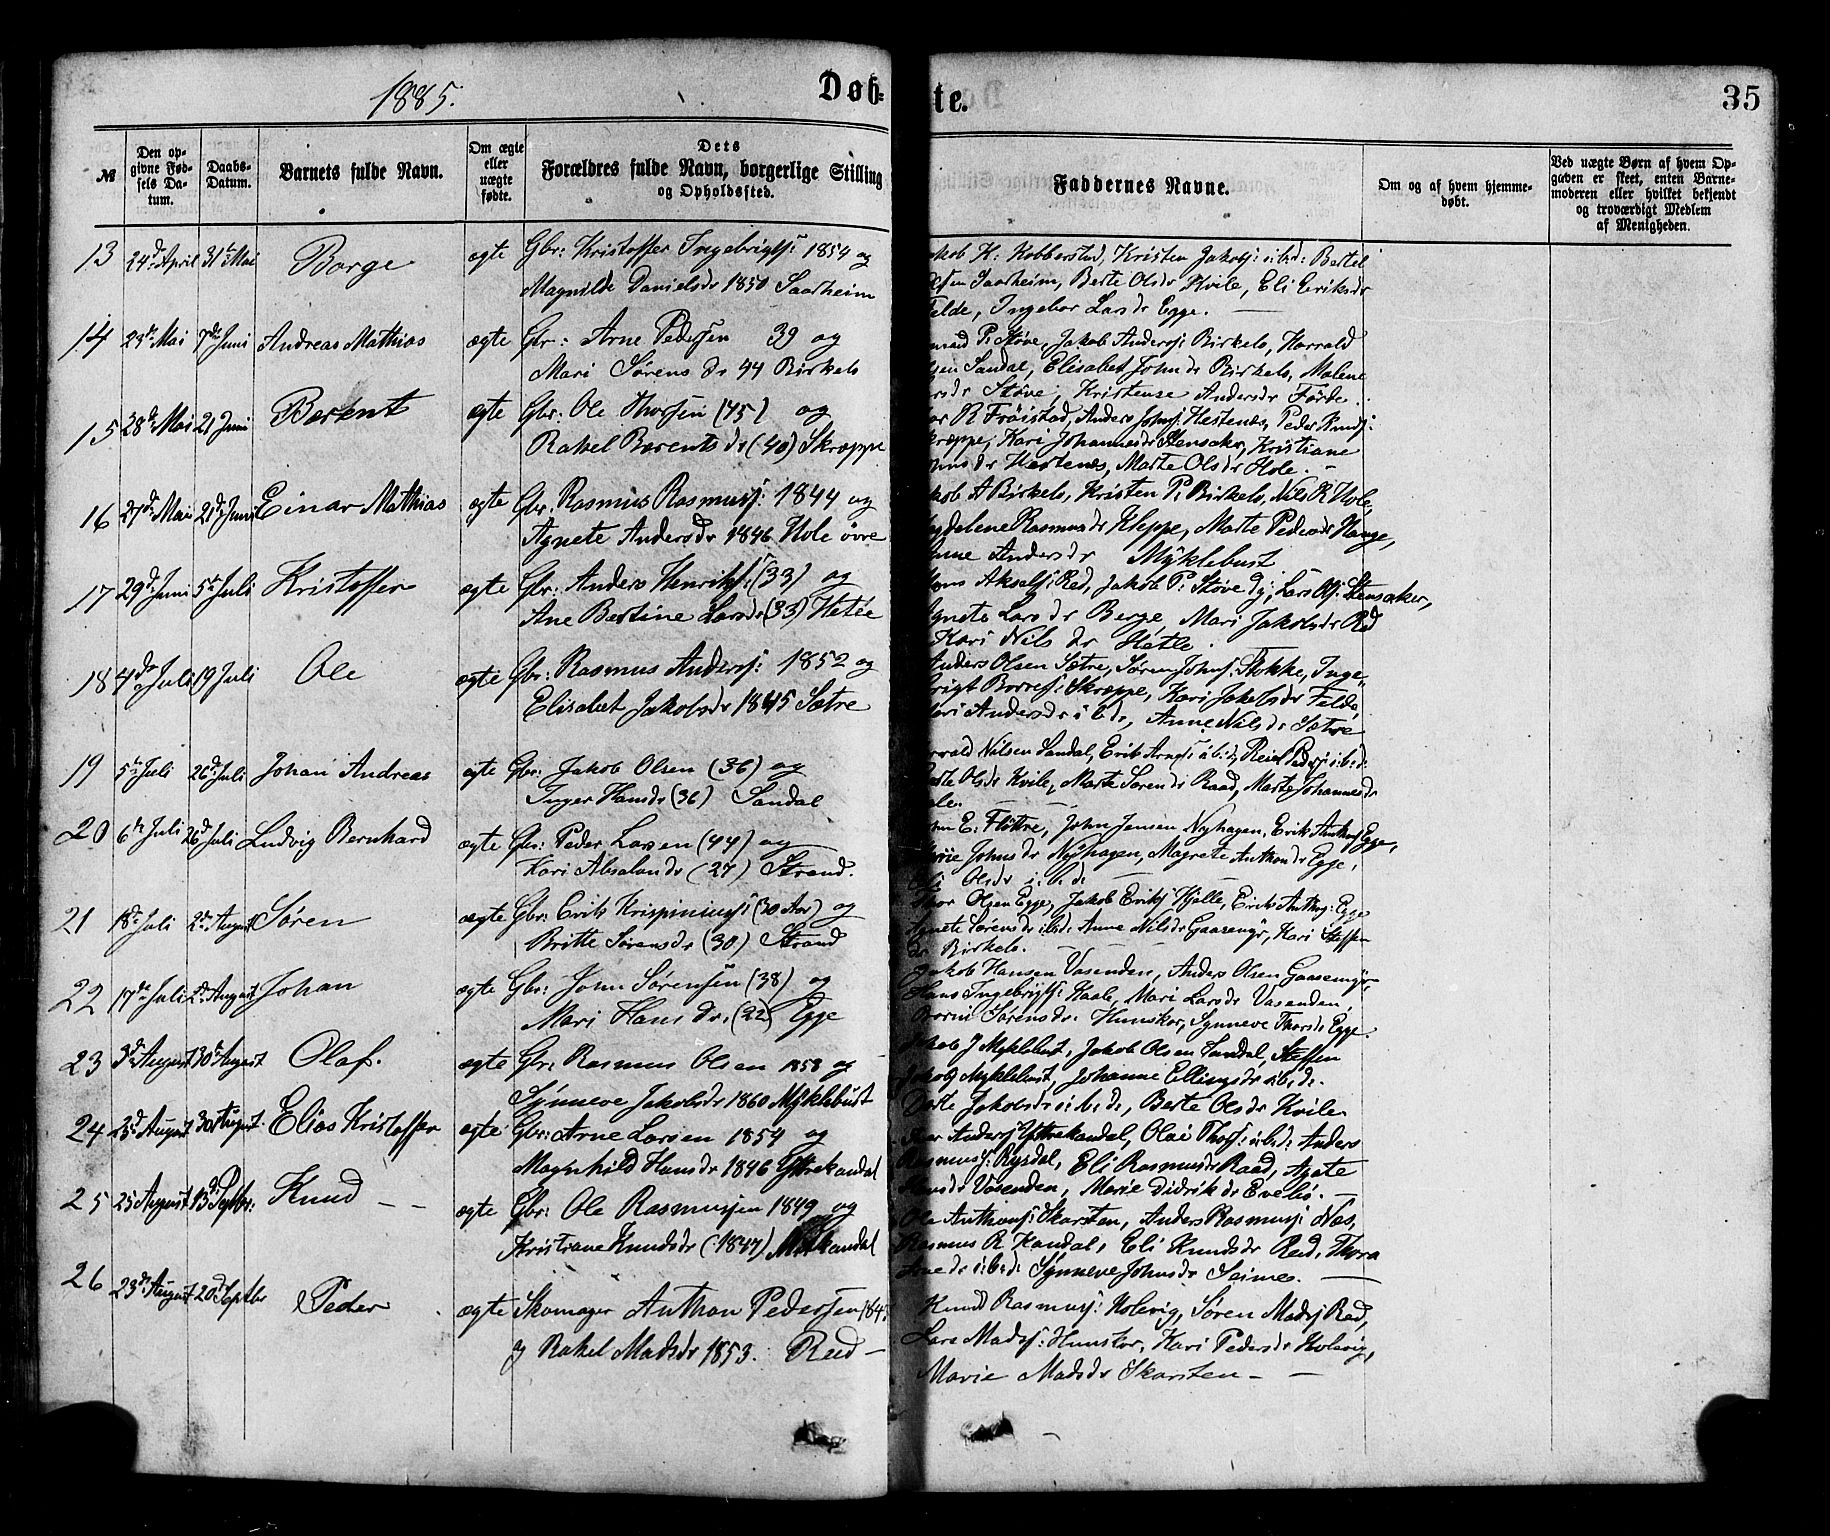 1885.
Døb-
te.
35
№
Den op-
givne Fød-
sels Da-
tum.
Daabs-
Datum.
Barnets fulde Navn.
Om ægte
eller
uægte
fødte.
Dets
Forældres fulde Navn, borgerlige Stilling
og Opholdssted.
Faddernes Navne.
Om og af hvem hjemme-
døbt.
Ved uægte Børn af hvem Op-
gaven er skeet, enten Barne-
moderen eller hvilket bekjendt
og troværdigt Medlem
af Menigheden.
13 24d April 31te Mai Borge ægte Gbr: Kristoffer Ingebrigts: 1854 og
Magnilde Danielsdr 1850 Saarheim
Jakob K: Kobberstad, Kristen Jakobs: ibid: Bertel
Saarheim, Berte Olsdr Kvile, Eli Eriksdr
Felde, Ingebor Larsdr Egge.
14 29de Mai 7de Juni Andreas Mathias ægte Gbr: Arne Pedersen 39 og
Mari Sørensdr 44 Birkelo
P: Støve, Jakob Anders: Birkelo, Harrald
Sandal, Elisabet Johndr Birkelo, Malene
Støve, Kristense Andersdr Førde.
15 28de Mai 21 Juni Berent ægte Gbr: Ole Thorsen (45) og
Rakel Berentsdr (40) Skræppe
R Frøistad, Anders Johns: Hestenes, Peder Knuds:
Skræppe, Kari Johannesdr Stensaker, Kristiane
Hestenes, Marte Olsdr Hole.
16 27de Mai 21de Juni Einar Mathias ægte Gbr. Rasmus Rasmuss: 1844 og
Agnete Andersdr 1846 Hole øvre
Jakob A Birkelo, Kristen P: Birkelo, Nils R Hole,
Magdelene Rasmusdr Kleppe, Marte Pedersdr Hauge,
Anne Andersdr Myklebust
17 29d Juni 5te Juli Kristoffer ægte Gbr: Anders Henriks: (33) og
Ane Bertine Larsdr (33) Hetle
Aksels: Red, Jakob P: Støve Lars Ols: Stensaker,
Agnete Larsdr Berge, Mari Jakobsdr Red
Kari Nilsdr Hetle.
18 4de Juli 19 Juli Ole ægte Gbr: Rasmus Anderss: 1852 og
Elisabet Jakobsdr 1845 Sætre
Anders Olsen Sætre, Søren Johns: Stokke, Inge-
brigt Borres: Skræppe, Kari Jakobsdr Felde,
Mari Andersdr ibid, Anne Nilsdr Sætre
19 5te Juli 26de Juli Johan Andreas ægte Gbr: Jakob Olsen (36) og
Inger Hansdr (36) Sandal
Harrald Nilsen Sandal, Erik Arnes: ibid,
Berte Olsdr Kvile, Marte Sørensdr Raad, Marte Johannesdr
20 6te Juli 26de Juli Ludvig Bernhard ægte Gbr: Peder Larsen (44) og
Kari Absalonsdr (27) Strand.
E: Fløttre, John Jensen Nyhagen, Erik Anthons: Egge,
Marie Johnsdr Nyhagen, Magrete Anthondr Egge,
Eli Olsdr ibid
21 18de Juli 2den August Søren ægte Gbr: Erik Krispinius: (30 Aar) og
Britte Sørensdr (30) Strand
Thor Olsen Egge, Jakob Eriks: Hjelle, Erik Anthons: Egge
Agnete Sørensdr ibid: Anne Nilsdr Gaasemyr, Kari Steffen-
dr Birkelo.
22 17de Juli 2d August Johan ægte Gbr: John Sørensen (38) og
Mari Hansdr: (22) Egge
Jakob Hansen Vasenden, Anders Olsen Gaasemyr,
Hans Ingebrigts: Kaale, Mari Larsdr Vasenden,
Sørensdr: Hunskor, Synneve Thorsdr Egge.
23 3d August 30te August Olaf. ægte Gbr: Rasmus Olsen 1858 og
Synneve Jakobsdr 1860 Myklebust
Jakob J Myklebust, Jakob Olsen Sandal, Steffen
Myklebust, Johanne Ellingsdr ibid.
Dorte Jakobsdr ibid, Berte Olsdr Kvile
24 23d August 30 August. Elias Kristoffer ægte Gbr: Arne Larsen 1854 og
Magnhild Hansdr 1846 Yttrekandal
Anders: Yttrekandal, Olai Thors: ibid: Anders
Rasmuss: Rysdal, Eli Rasmusdr Raad, Agate
Hansdr Vasenden, Marie Didrikdr Evebø.
25 25 August 13de Septbr: Knud ægte Gbr: Ole Rasmussen 1849 og
Kristiane Knudsdr (1847) Mitkandal
Ole Anthons: Skarsten, Anders Rasmuss: Næs,
Rasmus R Kandal, Eli Knudsdr Red, Thora
ibid: Synneve Johnsdr Seimes.
26 23de August 20de Septbr Peder ægte Skomager Anthon Pedersen 184
og Rakel Madsdr 1853. Red
Knud Rasmuss: Holevig, Søren Mads: Red,
Lars Madss: Hunskor, Kari Pedersdr Holevig,
Marie Madsdr Skarsten